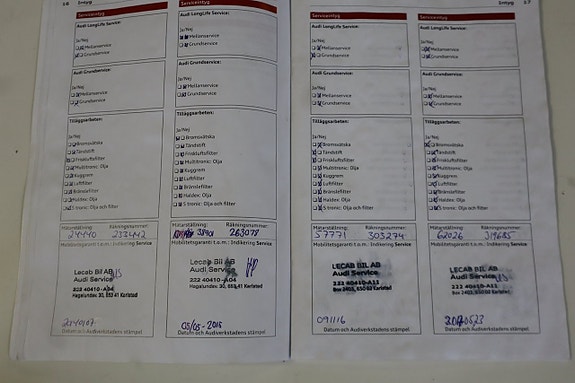 16 Intyg
Serviceintyg
Audi LongLife Service:
Ja/Nej
Mellanservice
Grundservice
Audi Grundservice:
Ja/Nej
Mellanservice
Grundservice
Tilläggsarbeten:
Ja/Nej
Bromsvätska
Tändstift
Friskluftsfilter
Multitronic: Olja
Kuggrem
Luftfilter
Bränslefilter
Haldex: Olja
S tronic: Olja och filter
Mätarställning: Räkningsnummer:
Mobilitetsgaranti t.o.m.: Indikering Service
Lecab Bil AB
Audi Service
222 40410-A04
Hagalundsv. 30, 653 41 Karlstad
Datum och Audiverkstadens stämpel
Serviceintyg
Audi LongLife Service:
Ja/Nej
Mellanservice
Grundservice
Audi Grundservice:
Ja/Nej
Mellanservice
Grundservice
Tilläggsarbeten:
Ja/Nej
Bromsvätska
Tändstift
Friskluftsfilter
Multitronic: Olja
Kuggrem
Luftfilter
Bränslefilter
Haldex: Olja
S tronic: Olja och filter
Mätarställning: Räkningsnummer:
263078
Mobilitetsgaranti t.o.m.: Indikering Service
Lecab Bil AB
Audi Service
222 40410-A04
Hagalundsv. 30, 653 41 Karlstad
05/05-2015
Datum och Audiverkstadens stämpel
Intyg 17
Serviceintyg
Audi LongLife Service:
Ja/Nej
Mellanservice
Grundservice
Audi Grundservice:
Ja/Nej
Mellanservice
Grundservice
Tilläggsarbeten:
Ja/Nej
Bromsvätska
Tändstift
Friskluftsfilter
Multitronic: Olja
Kuggrem
Luftfilter
Bränslefilter
Haldex: Olja
S tronic: Olja och filter
Mätarställning: Räkningsnummer:
57771 303274
Mobilitetsgaranti t.o.m.: Indikering Service
LECAB BIL AB
Audi Service
222 40410-A11
Box 2403, 650 00 Karlstad
091116
Datum och Audiverkstadens stämpel
Serviceintyg
Audi LongLife Service:
Ja/Nej
Mellanservice
Grundservice
Audi Grundservice:
Ja/Nej
Mellanservice
Grundservice
Tilläggsarbeten:
Ja/Nej
Bromsvätska
Tändstift
Friskluftsfilter
Multitronic: Olja
Kuggrem
Luftfilter
Bränslefilter
Haldex: Olja
S tronic: Olja och filter
Mätarställning: Räkningsnummer:
62026 319685
Mobilitetsgaranti t.o.m.: Indikering Service
LECAB BIL AB
Audi Service
222 40410-A11
Datum och Audiverkstadens stämpel